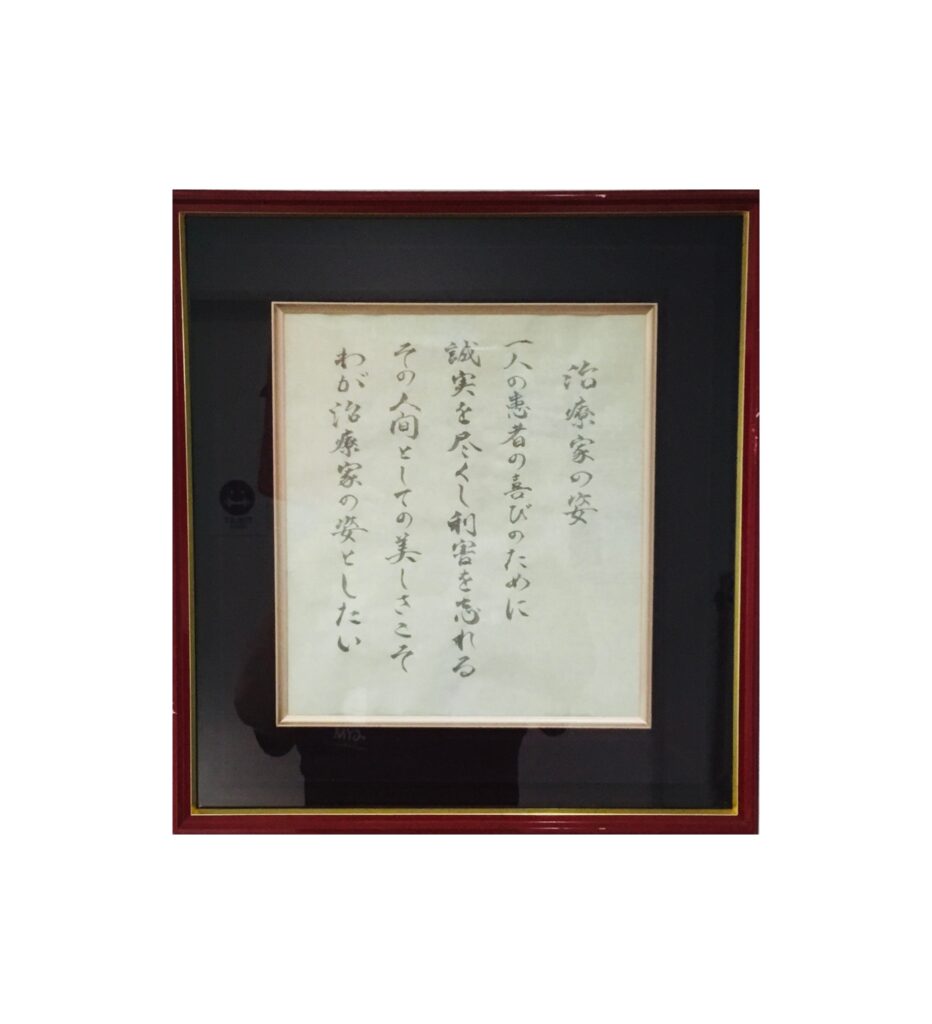 治療家の姿
一人の患者の喜びのために
誠実を尽くし利害を忘れる
その人間としての美しさこそ
わが治療家の姿としたい